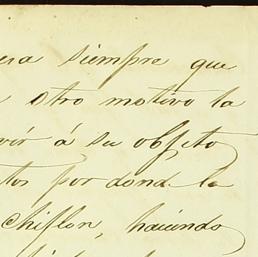 era siempre que
otro motivo la
vir á su objeto
tos por donde la
chiflon, haciendo